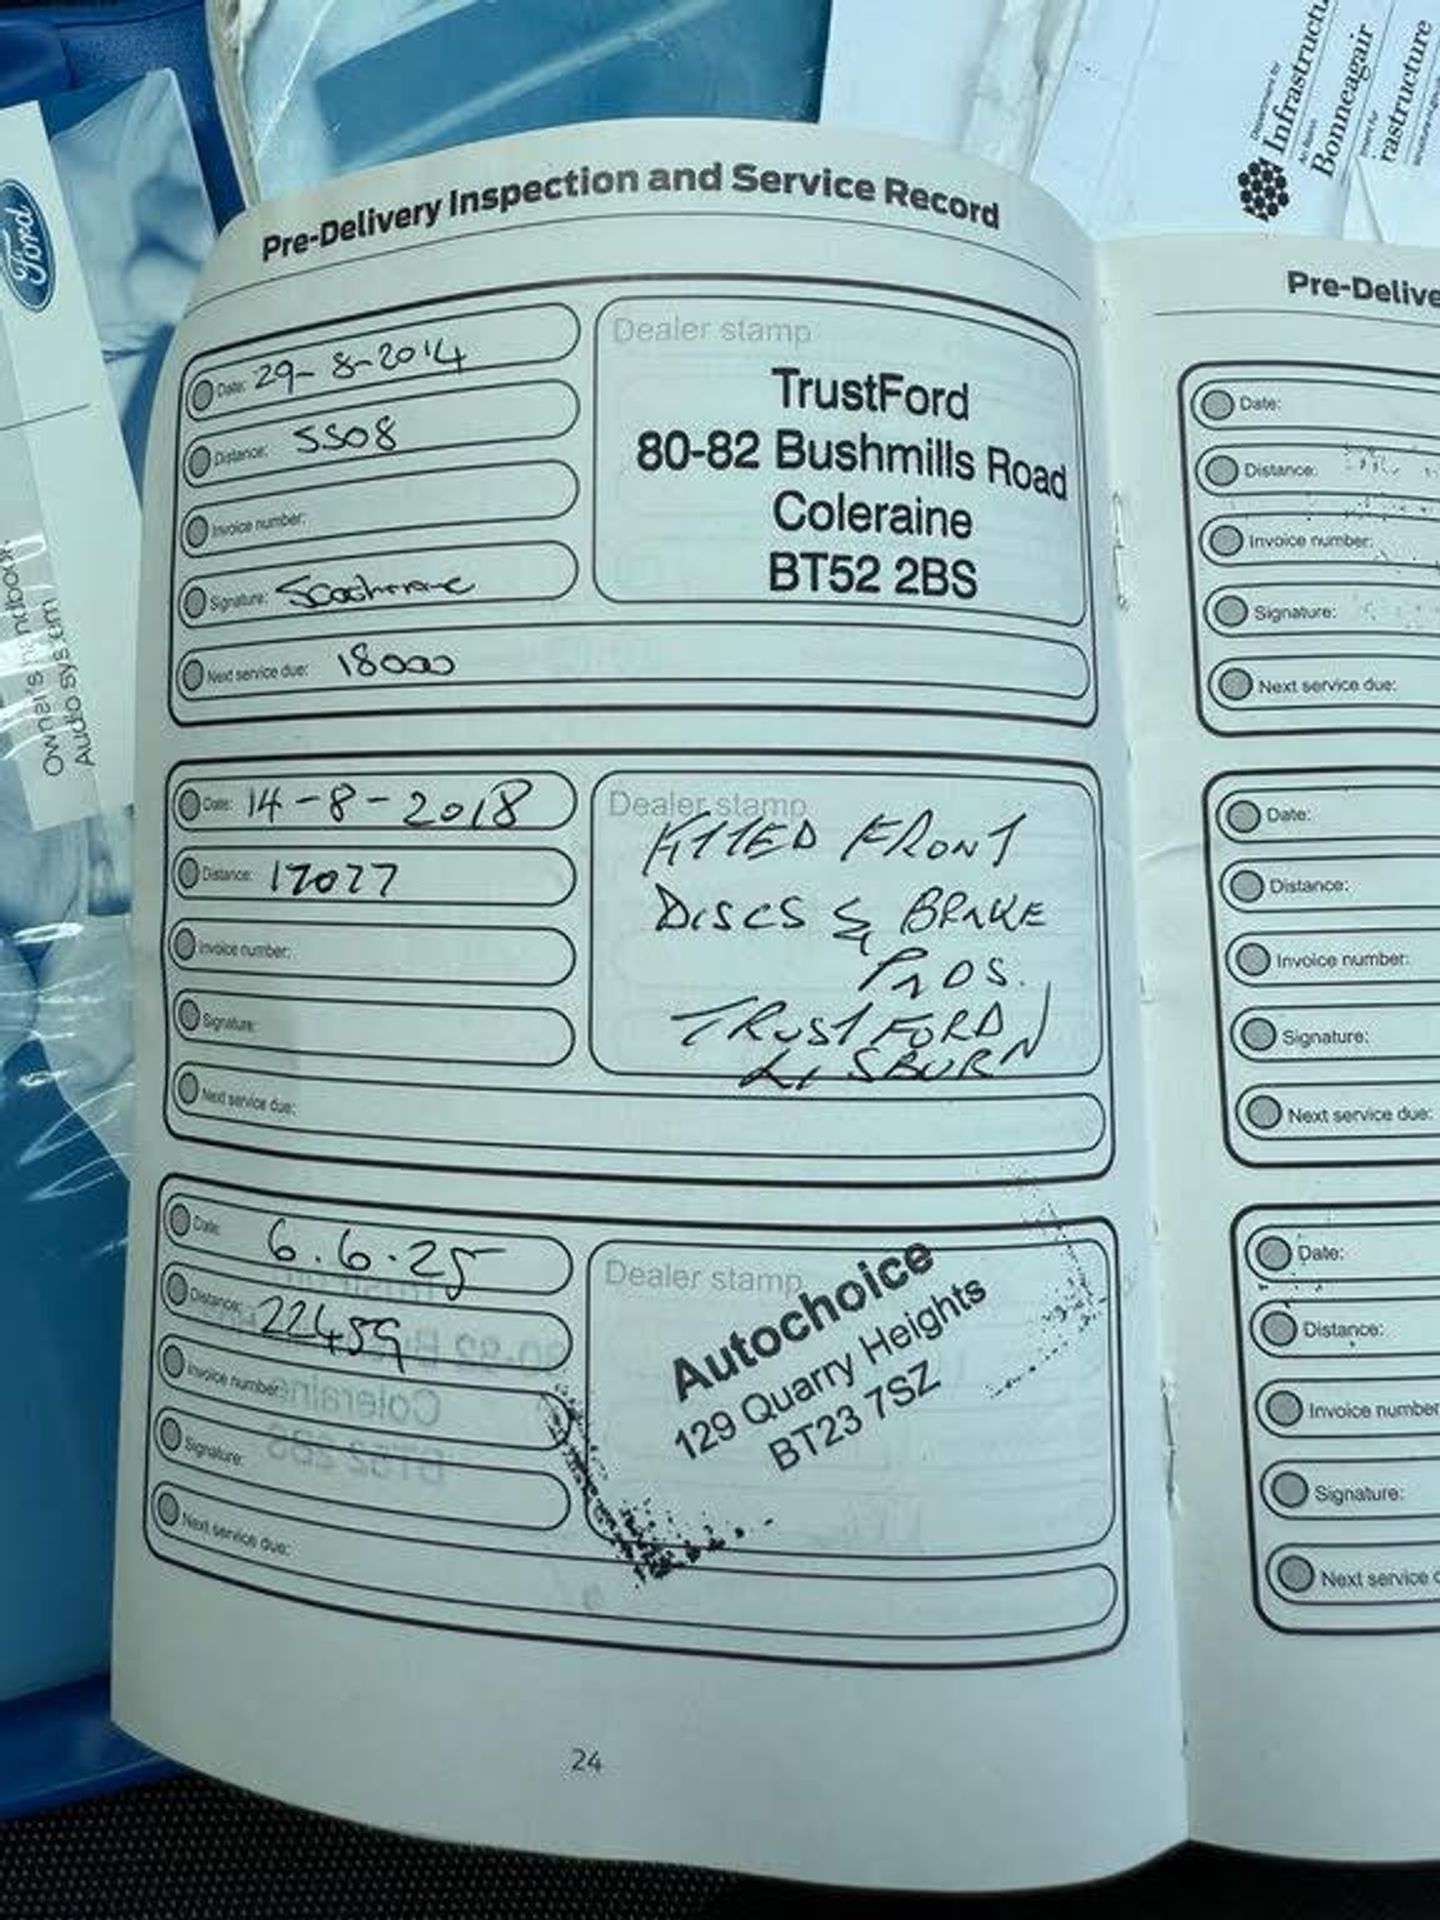 Ford
Owner's handbook
Audio system
Department for
Infrastructu
An Roinn
Bonneagair
rastructure
Pre-Delivery Inspection and Service Record
Date: 29-8-2014
Distance: 5508
Invoice number:
Signature:
Next service due: 18000
Dealer stamp
TrustFord
80-82 Bushmills Road
Coleraine
BT52 2BS
Date: 14-8-2018
Distance: 17077
Invoice number:
Signature:
Next service due:
Dealer stamp
FITTED FRONT
DISCS & BRAKE
PADS.
TRUSTFORD
LISBURN
Date: 6.6.25
Distance: 22459
Invoice number:
Signature:
Next service due:
Dealer stamp
Autochoice
129 Quarry Heights
BT23 7SZ
80-82 B
Coleraine
BT52 2BS
24
Pre-Delive
Date:
Distance:
Invoice number:
Signature:
Next service due:
Date:
Distance:
Invoice number:
Signature:
Next service due:
Date:
Distance:
Invoice number
Signature:
Next service d